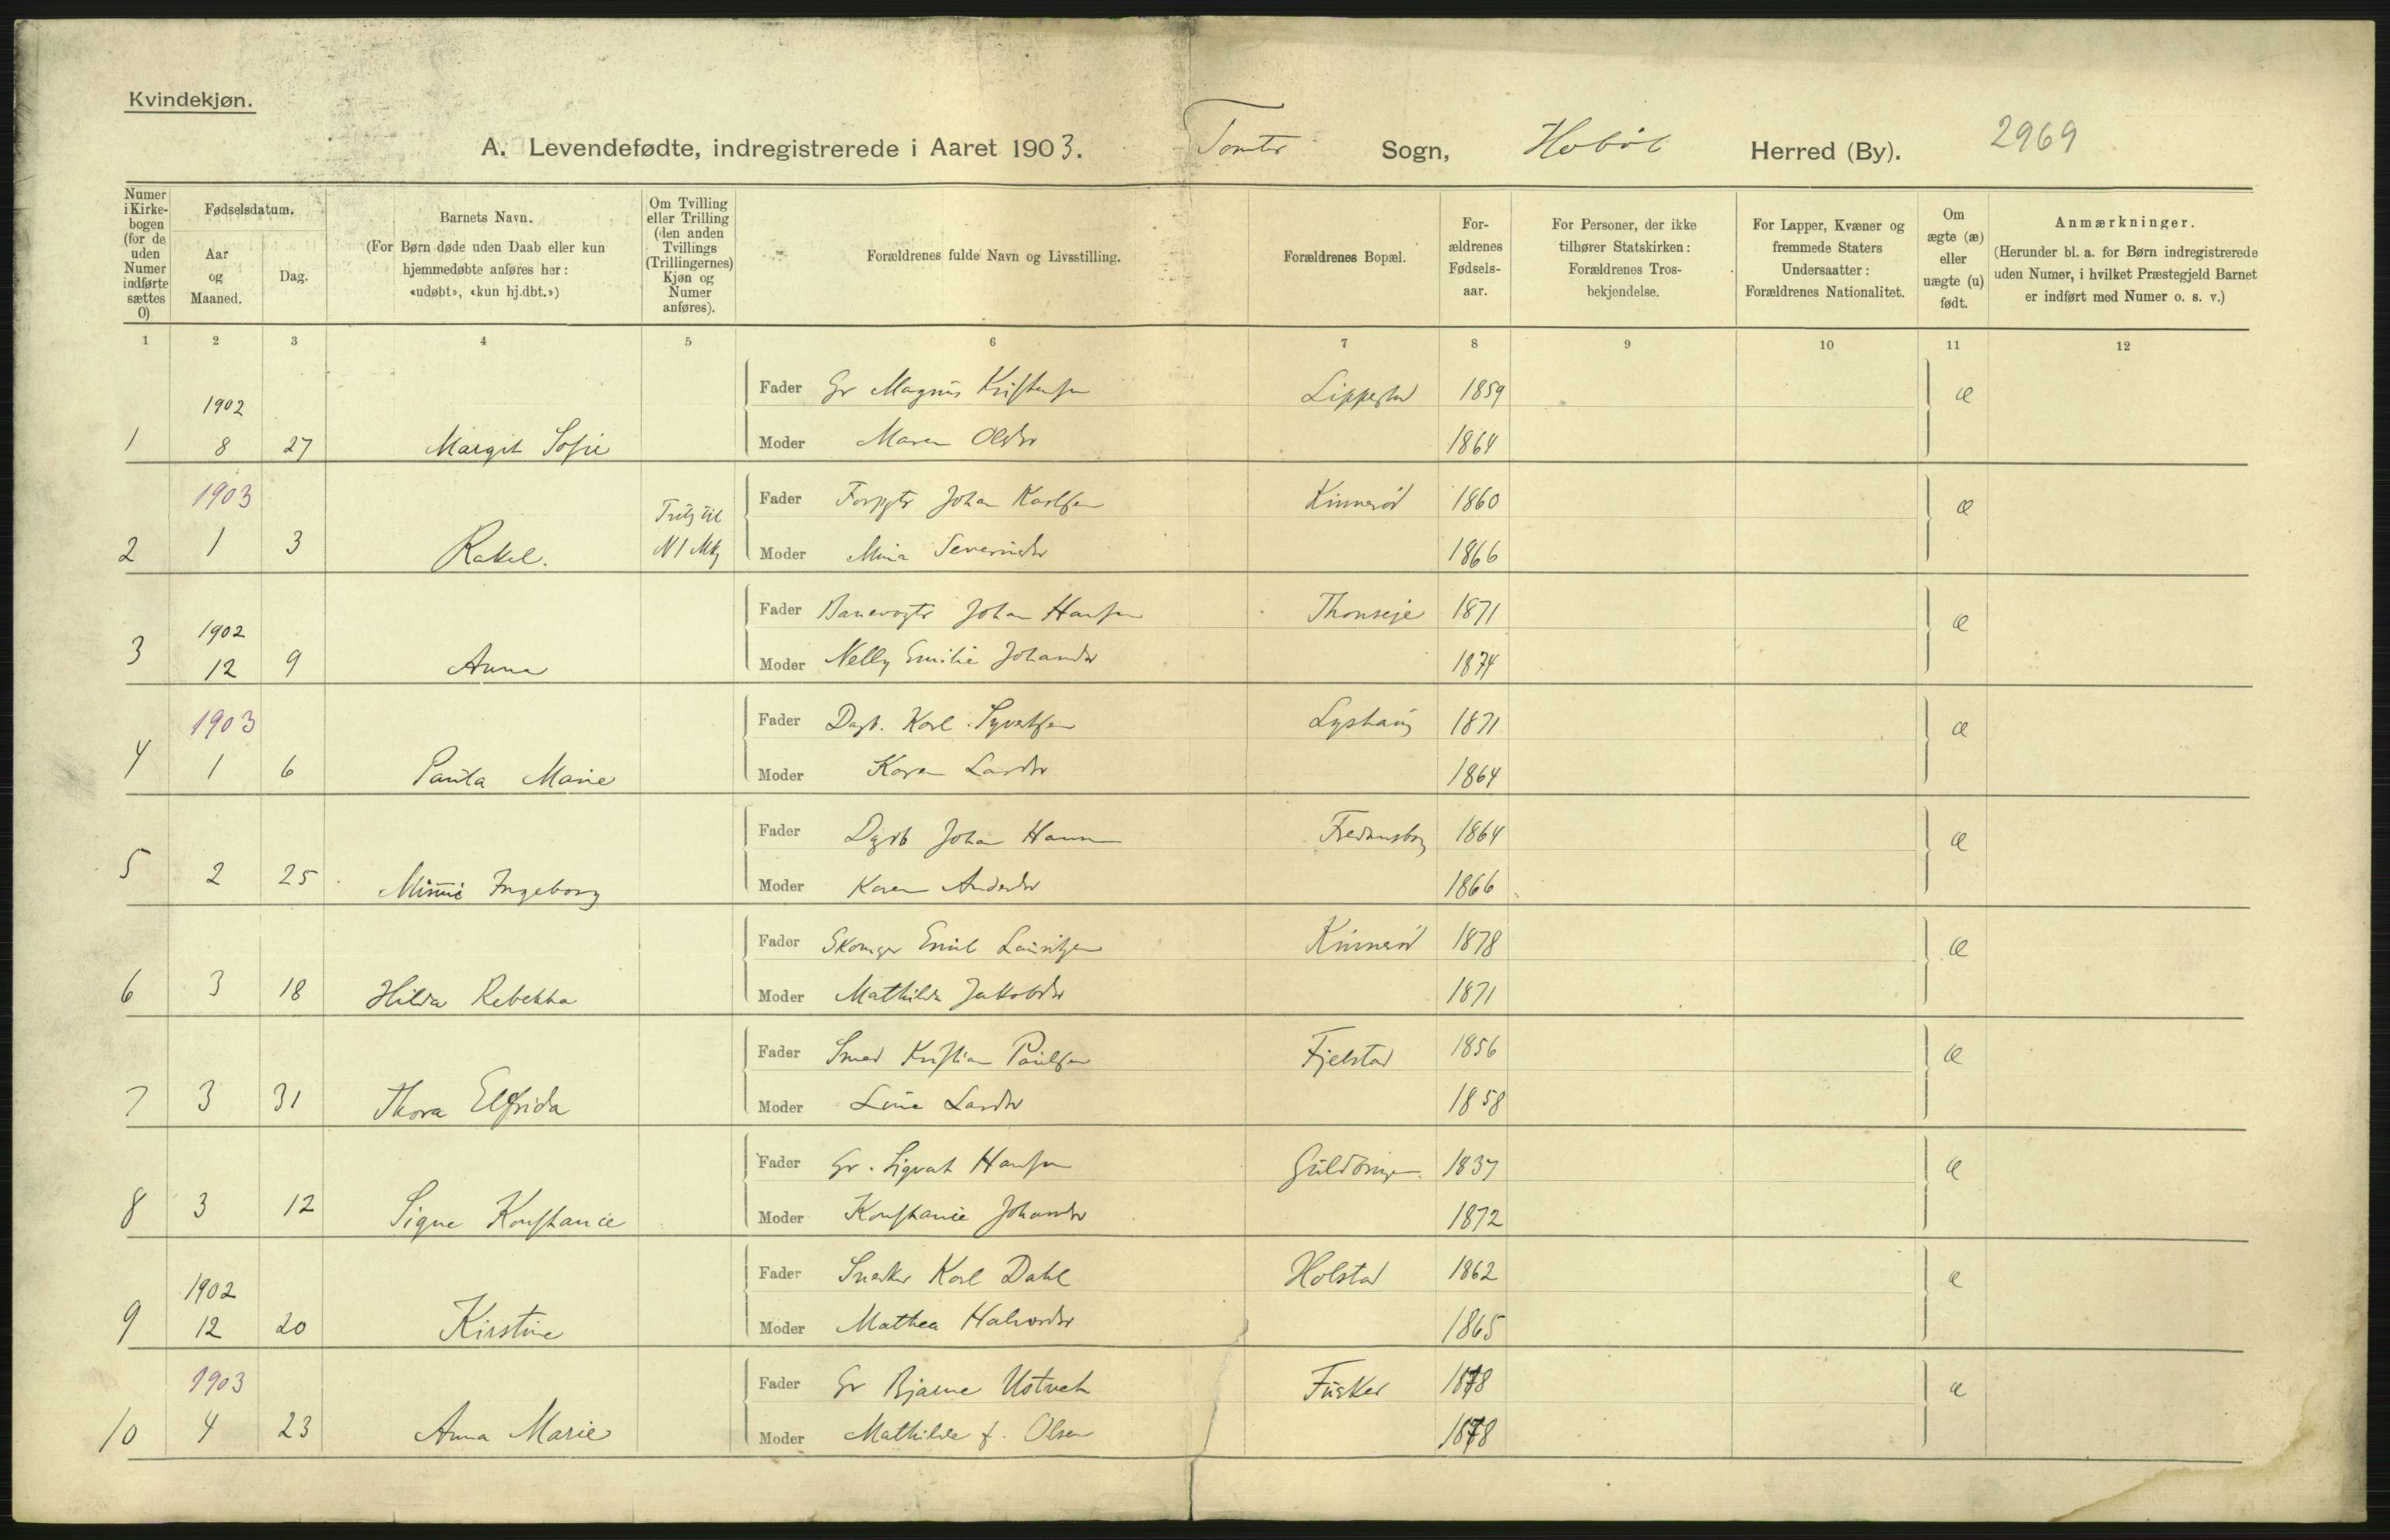 Kvindekjøn.
A. Levendefødte, indregistrerede i Aaret 1903. Tomter Sogn, Hobøl Herred (By). 2969
Numer i Kirkebogen (for de uden Numer indførte sættes 0)
Fødselsdatum.
Aar og Maaned.
Dag.
Barnets Navn.
(For Børn døde uden Daab eller kun hjemmedøbte anføres her: «udøbt», «kun hj.dbt.»)
Om Tvilling eller Trilling (den anden Tvillings (Trillingernes) Kjøn og Numer anføres).
Forældrenes fulde Navn og Livsstilling.
Forældrenes Bopæl.
Forældrenes Fødselsaar.
For Personer, der ikke tilhører Statskirken: Forældrenes Trosbekjendelse.
For Lapper, Kvæner og fremmede Staters Undersaatter: Forældrenes Nationalitet.
Om ægte (æ) eller uægte (u) født.
Anmærkninger.
(Herunder bl. a. for Børn indregistrerede uden Numer, i hvilket Præstegjeld Barnet er indført med Numer o. s. v.)
1 2 3 4 5 6 7 8 9 10 11 12
1902 Fader Gr Magnus Kristensen Lippestad 1859 æ
1 8 27 Margit Sofie Moder Maren Olsdr 1864
1903 Fader Johan Karlsen Kinnerød 1860 æ
2 1 3 Rakel. N 1 Mk Moder Mina Severinsdr 1866
1902 Fader Banevogter Johan Hansen Thonseje 1871 æ
3 12 9 Anna Moder Nelly Emilie Johansdr 1874
1903 Fader Dagb. Karl Syvertsen Lyshaug 1871 æ
4 1 6 Paula Marie Moder Karen Larsdr 1864
Fader Dagb Johan Hansen 1864 æ
5 2 25 Minnie Ingeborg Moder Karen Andersdr 1866
Fader Skomager Emil Lauritzen Kinnerød 1878 æ
6 3 18 Hilda Rebekka Moder Mathilde Jakobsdr 1871
Fader Smed Kristian Paulsen Fjelstad 1856 æ
7 3 31 Thora Elfrida Moder Line Larsdr 1858
Fader Gr. Sigvart Hansen 1837 æ
8 3 12 Signe Konstance Moder Konstance Johansdr 1872
1902 Fader Snedker Karl Dahl Holstad 1862 æ
9 12 20 Kirstine Moder Mathea Halvorsdr 1865
1903 Fader Gr Bjarne Ustvet Fusker 1878 æ
10 4 23 Anna Marie Moder Mathilde f. Olsen 1878